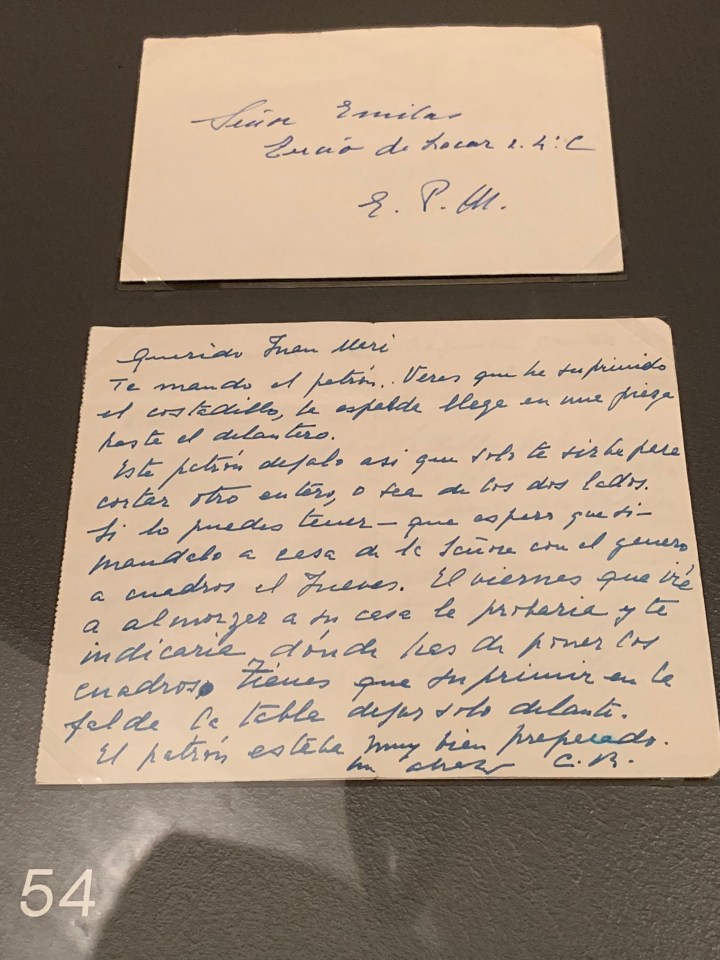 Señor Emilas
Lucio de Lacar 2. 4º. C
E. P. M.
Querido Juan Mari
Te mando el patrón.. Veras que he suprimido
el costadillo, la espalda llega en una pieza
hasta el delantero.
Este patrón dejalo asi que solo te sirbe para
cortar otro entero, o sea de los dos lados.
Si lo puedes tener - que espero que si -
mandalo a casa de la Señora con el genero
a cuadros el Jueves. El viernes que iré
a almorzar a su casa la probaria y te
indicaria dónde has de poner los
cuadros. Tienes que suprimir en la
falda la tabla dejar solo delante.
El patrón estaba muy bien preparado.
Un abrazo C. B.
54